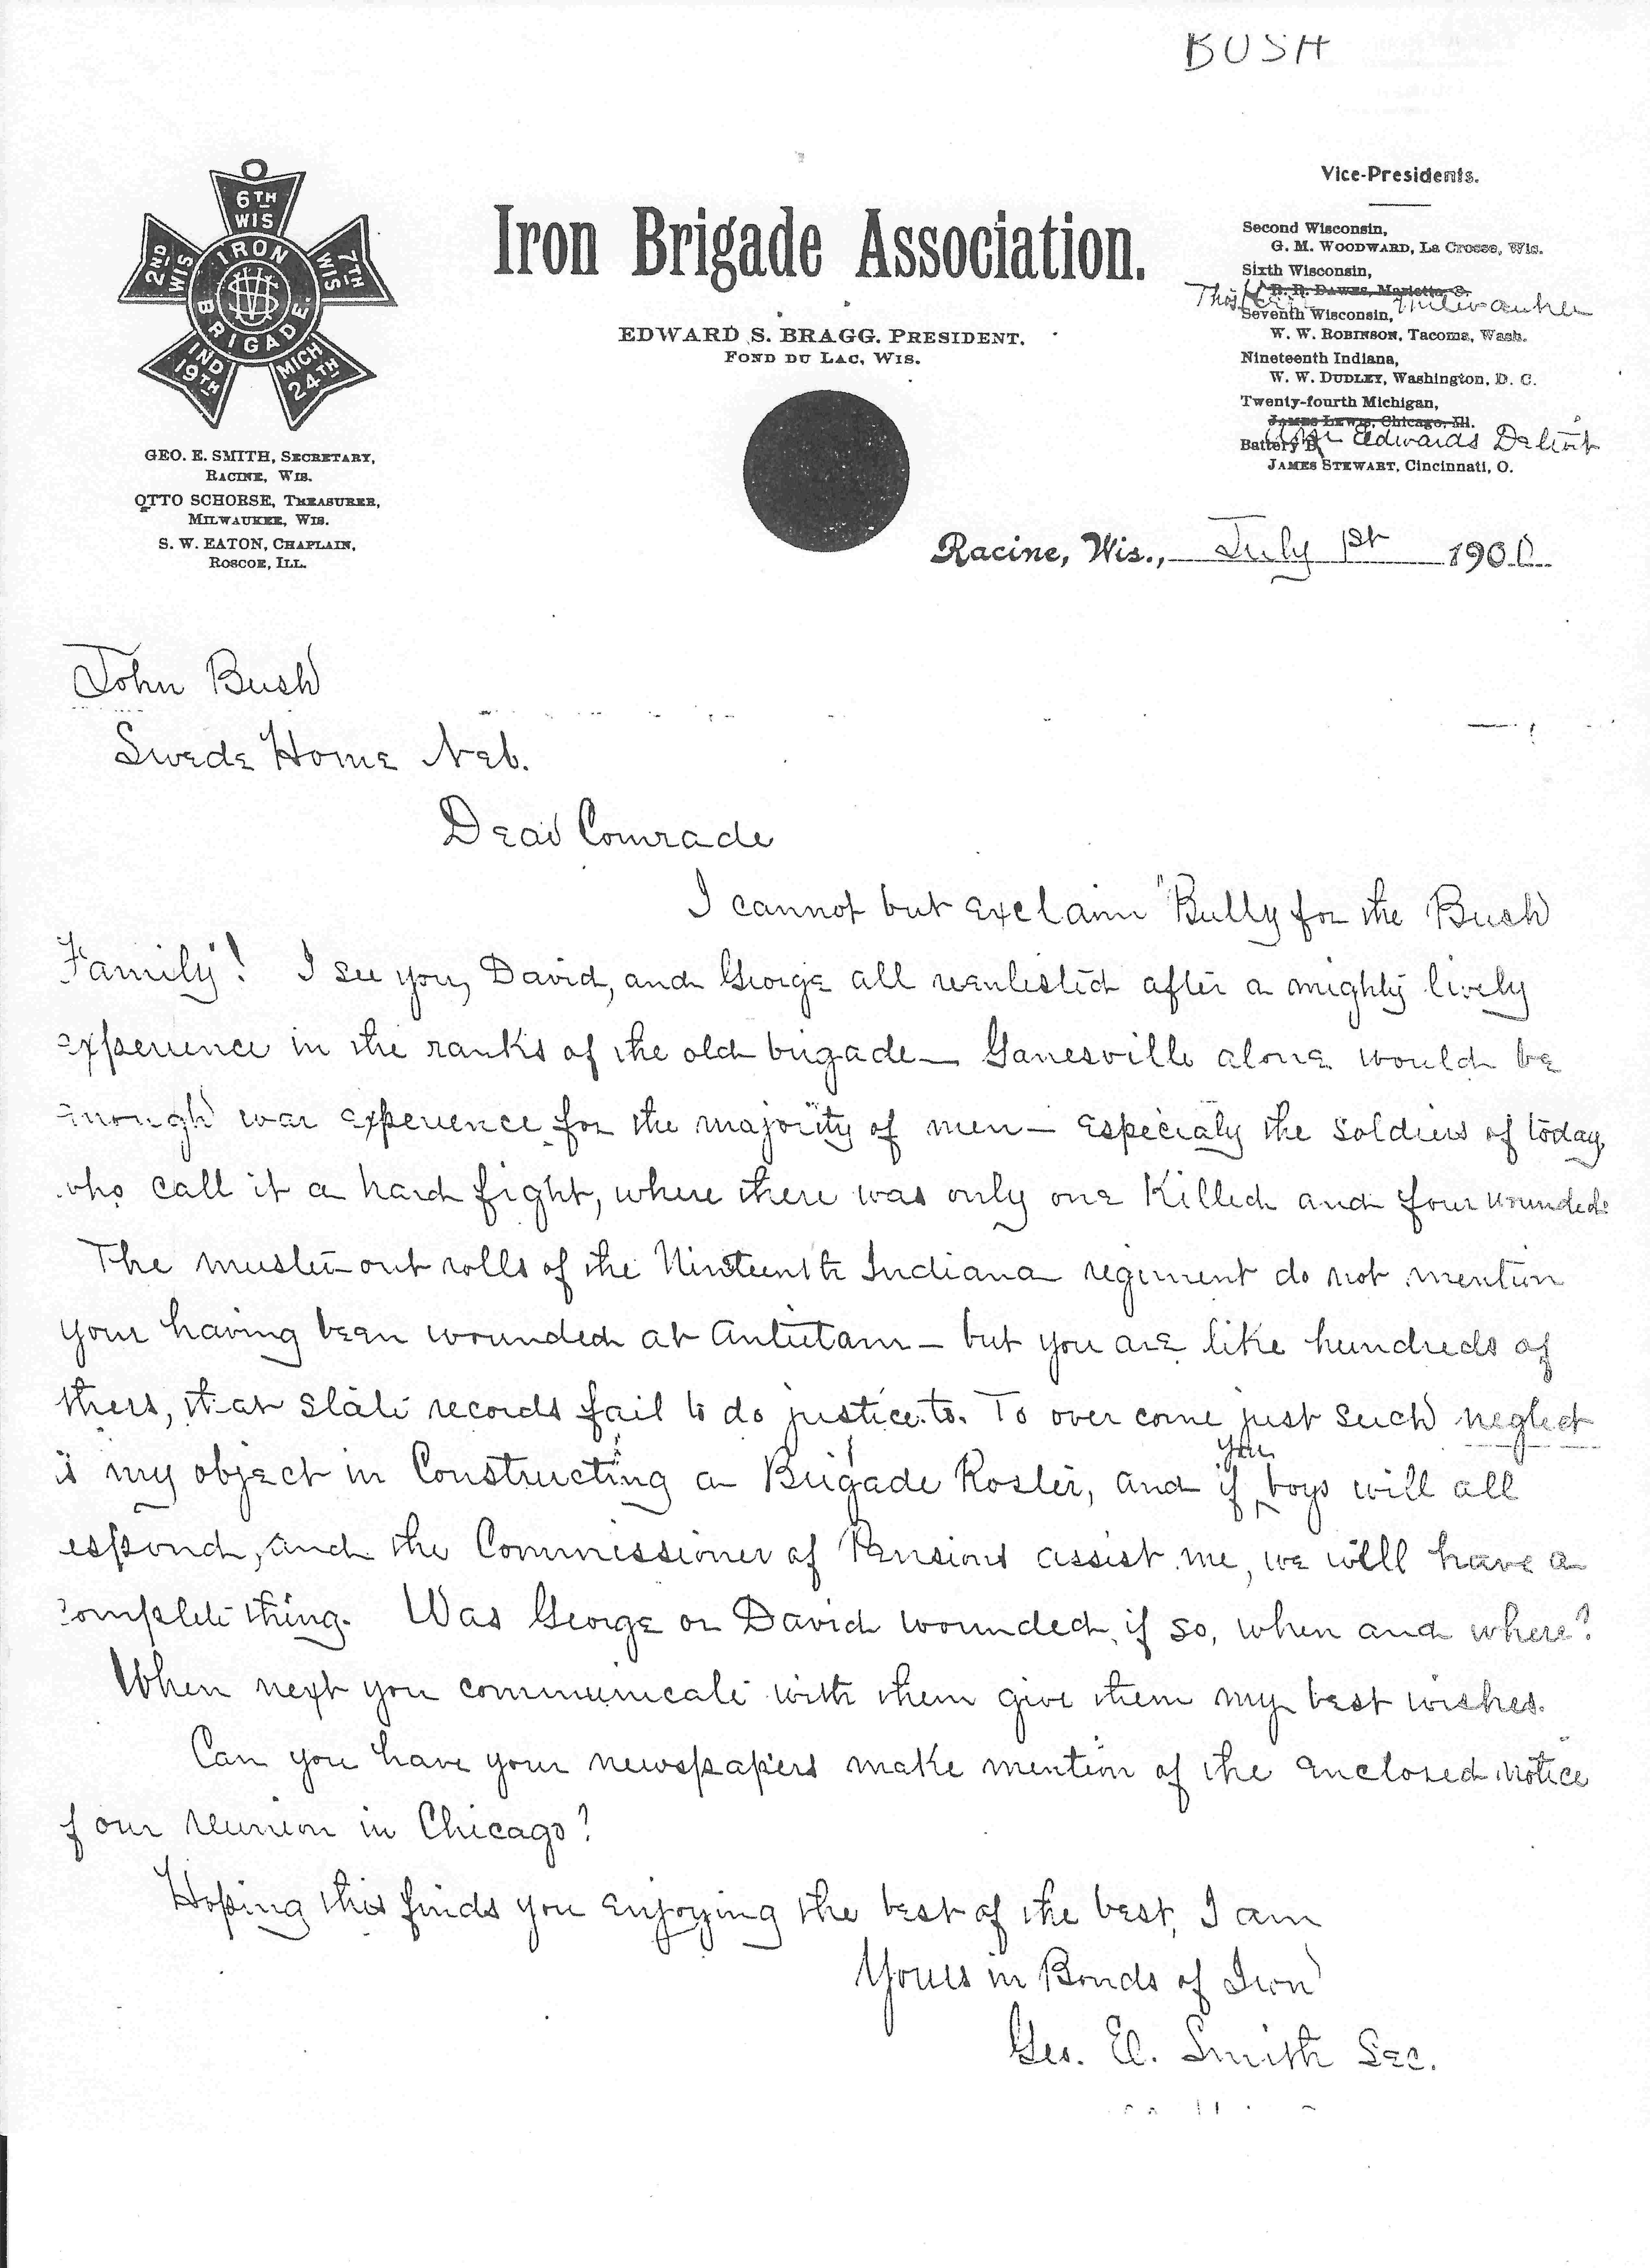 BUSH
6TH WIS
7TH WIS
MICH 24TH
IND 19TH
2ND WIS
IRON BRIGADE.
US
Iron Brigade Association.
EDWARD S. BRAGG. PRESIDENT.
FOND DU LAC, WIS.
GEO. E. SMITH, SECRETARY,
RACINE, WIS.
OTTO SCHORSE, TREASURER,
MILWAUKEE, WIS.
S. W. EATON, CHAPLAIN,
ROSCOE, ILL.
Vice-Presidents.
Second Wisconsin,
G. M. WOODWARD, La Crosse, Wis.
Sixth Wisconsin,
R. R. DAWES, Marietta, O.
Thos Kerr Milwaukee
Seventh Wisconsin,
W. W. ROBINSON, Tacoma, Wash.
Nineteenth Indiana,
W. W. DUDLEY, Washington, D. C.
Twenty-fourth Michigan,
JAMES LEWIS, Chicago, Ill.
Edwards Detroit
Battery B,
JAMES STEWART, Cincinnati, O.
Racine, Wis., July 1st 1900
John Bush
Swede Home Neb.
Dear Comrade
I cannot but exclaim "Bully for the Bush
Family"! I see you, David, and George all reenlisted after a mighty lively
experience in the ranks of the old brigade — Ganesville alone would be
enough war experience for the majority of men — especialy the soldiers of today,
who call it a hard fight, where there was only one killed and four wounded.
The muster-out rolls of the Ninteenth Indiana regiment do not mention
your having been wounded at Antietam — but you are like hundreds of
thers, that state records fail to do justice to. To over come just such neglect
is my object in Constructing a Brigade Roster, and if you boys will all
espond, and the Commissioner of Pensions assist me, we will have a
complete thing. Was George or David wounded, if so, when and where?
When next you communicate with them give them my best wishes.
Can you have your newspapers make mention of the enclosed notice
f our reunion in Chicago?
Hoping this finds you enjoying the best of the best, I am
Yours in Bonds of Iron
Geo. E. Smith Sec.